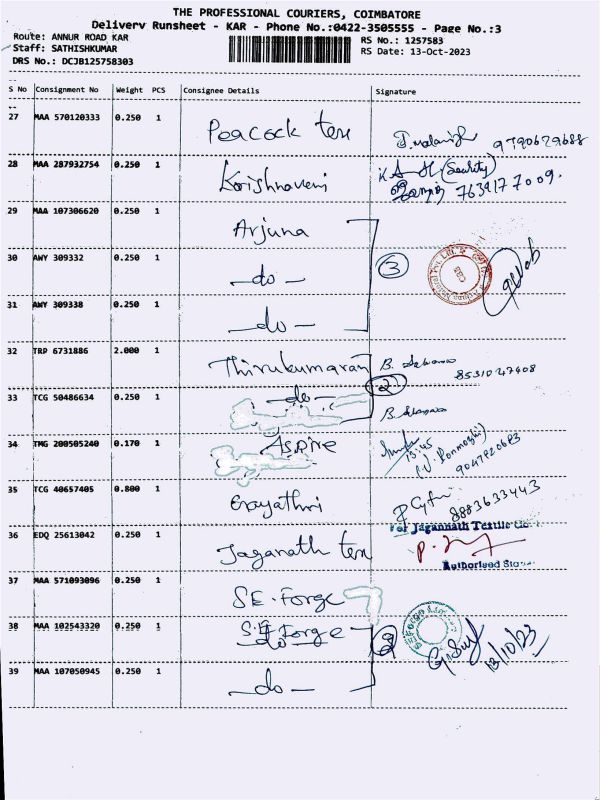 THE PROFESSIONAL COURIERS, COIMBATORE
Delivery Runsheet - KAR - Phone No.:0422-3505555 - Page No.:3
Route: ANNUR ROAD KAR
RS No.: 1257583
Staff: SATHISHKUMAR
RS Date: 13-Oct-2023
DRS No.: DCJB125758303
S No Consignment No Weight PCS Consignee Details Signature
27 MAA 570120333 0.250 1 Peacock tex
9790629688
28 MAA 287932754 0.250 1 Krishnaveni (Security)
7639177009.
29 MAA 107306620 0.250 1 Arjuna
30 AWY 309332 0.250 1 -do- 3
31 AWY 309338 0.250 1 -do-
32 TRP 6731886 2.000 1 Thirukumaran
8531047408
33 TCG 50486634 0.250 1 -do- 2
34 TMG 200505240 0.170 1 Aspire
13:45
9047820683
35 TCG 40657405 0.800 1 Erayathri
8883633443
For Jagannath Textile
36 EDQ 25613042 0.250 1 Jaganath tex
Authorised
37 MAA 571093096 0.250 1 S.E. Forge
38 MAA 102543320 0.250 1 S.E. Forge
do
13/10/23
39 MAA 107050945 0.250 1 -do-